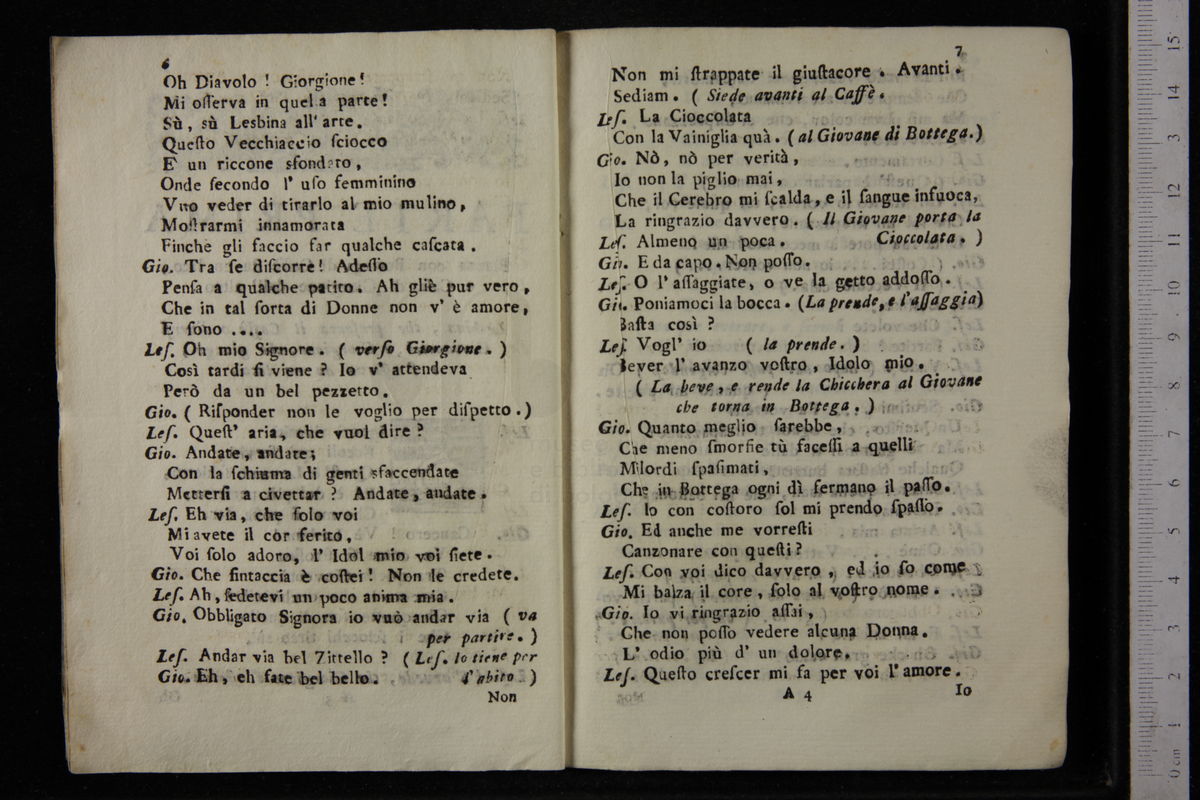 6
Oh Diavolo ! Giorgione !
Mi oſſerva in quella parte !
Sù , sù Lesbina all' arte .
Queſto Vecchiaccio ſciocco
E' un riccone sfondato ,
Onde ſecondo l' uſo femminino
Vuo veder di tirarlo al mio mulino ,
Moſtrarmi innamorata
Finchè gli faccio far qualche caſcata .
Gio. Tra ſe diſcorre ! Adeſſo
Penſa a qualche patito . Ah gliè pur vero ,
Che in tal ſorta di Donne non v' è amore ,
E ſono ....
Leſ. Oh mio Signore . ( verſo Giorgione . )
Così tardi ſi viene ? Io v' attendeva
Però da un bel pezzetto .
Gio. ( Riſponder non le voglio per diſpetto . )
Leſ. Queſt' aria , che vuol dire ?
Gio. Andate , andate ;
Con la ſchiuma di genti sfaccendate
Metterſi a civettar ? Andate , andate .
Leſ. Eh via , che ſolo voi
Mi avete il cor ferito ,
Voi ſolo adoro , l' Idol mio voi ſiete .
Gio. Che fintaccia è coſtei ! Non le credete .
Leſ. Ah , ſedetevi un poco anima mia .
Gio. Obbligato Signora io vuò andar via ( va
per partire . )
Leſ. Andar via bel Zittello ? ( Leſ. lo tiene per
Gio. Eh , eh fate bel bello . l' abito . )
Non
7
Non mi ſtrappate il giuſtacore . Avanti .
Sediam . ( Siede avanti al Caffè .
Leſ. La Cioccolata
Con la Vainiglia quà . ( al Giovane di Bottega . )
Gio. Nò , nò per verità ,
Io non la piglio mai ,
Che il Cerebro mi ſcalda , e il ſangue infuoca ,
La ringrazio davvero . ( Il Giovane porta la
Leſ. Almeno un poca . Cioccolata . )
Gio. E da capo . Non poſſo .
Leſ. O l' aſſaggiate , o ve la getto addoſſo .
Gio. Poniamoci la bocca . ( La prende , e l'aſſaggia )
Baſta così ?
Leſ. Vogl' io ( la prende . )
Bever l' avanzo voſtro , Idolo mio .
( La beve , e rende la Chicchera al Giovane
che torna in Bottega . )
Gio. Quanto meglio ſarebbe ,
Che meno ſmorfie tù faceſſi a quelli
Milordi ſpaſimati ,
Che in Bottega ogni dì fermano il paſſo .
Leſ. Io con coſtoro ſol mi prendo ſpaſſo .
Gio. Ed anche me vorreſti
Canzonare con queſti ?
Leſ. Con voi dico davvero , ed io ſo come
Mi balza il core , ſolo al voſtro nome .
Gio. Io vi ringrazio aſſai ,
Che non poſſo vedere alcuna Donna .
L' odio più d' un dolore .
Leſ. Queſto creſcer mi fa per voi l' amore .
A 4 Io
0 cm 1 2 3 4 5 6 7 8 9 10 11 12 13 14 15